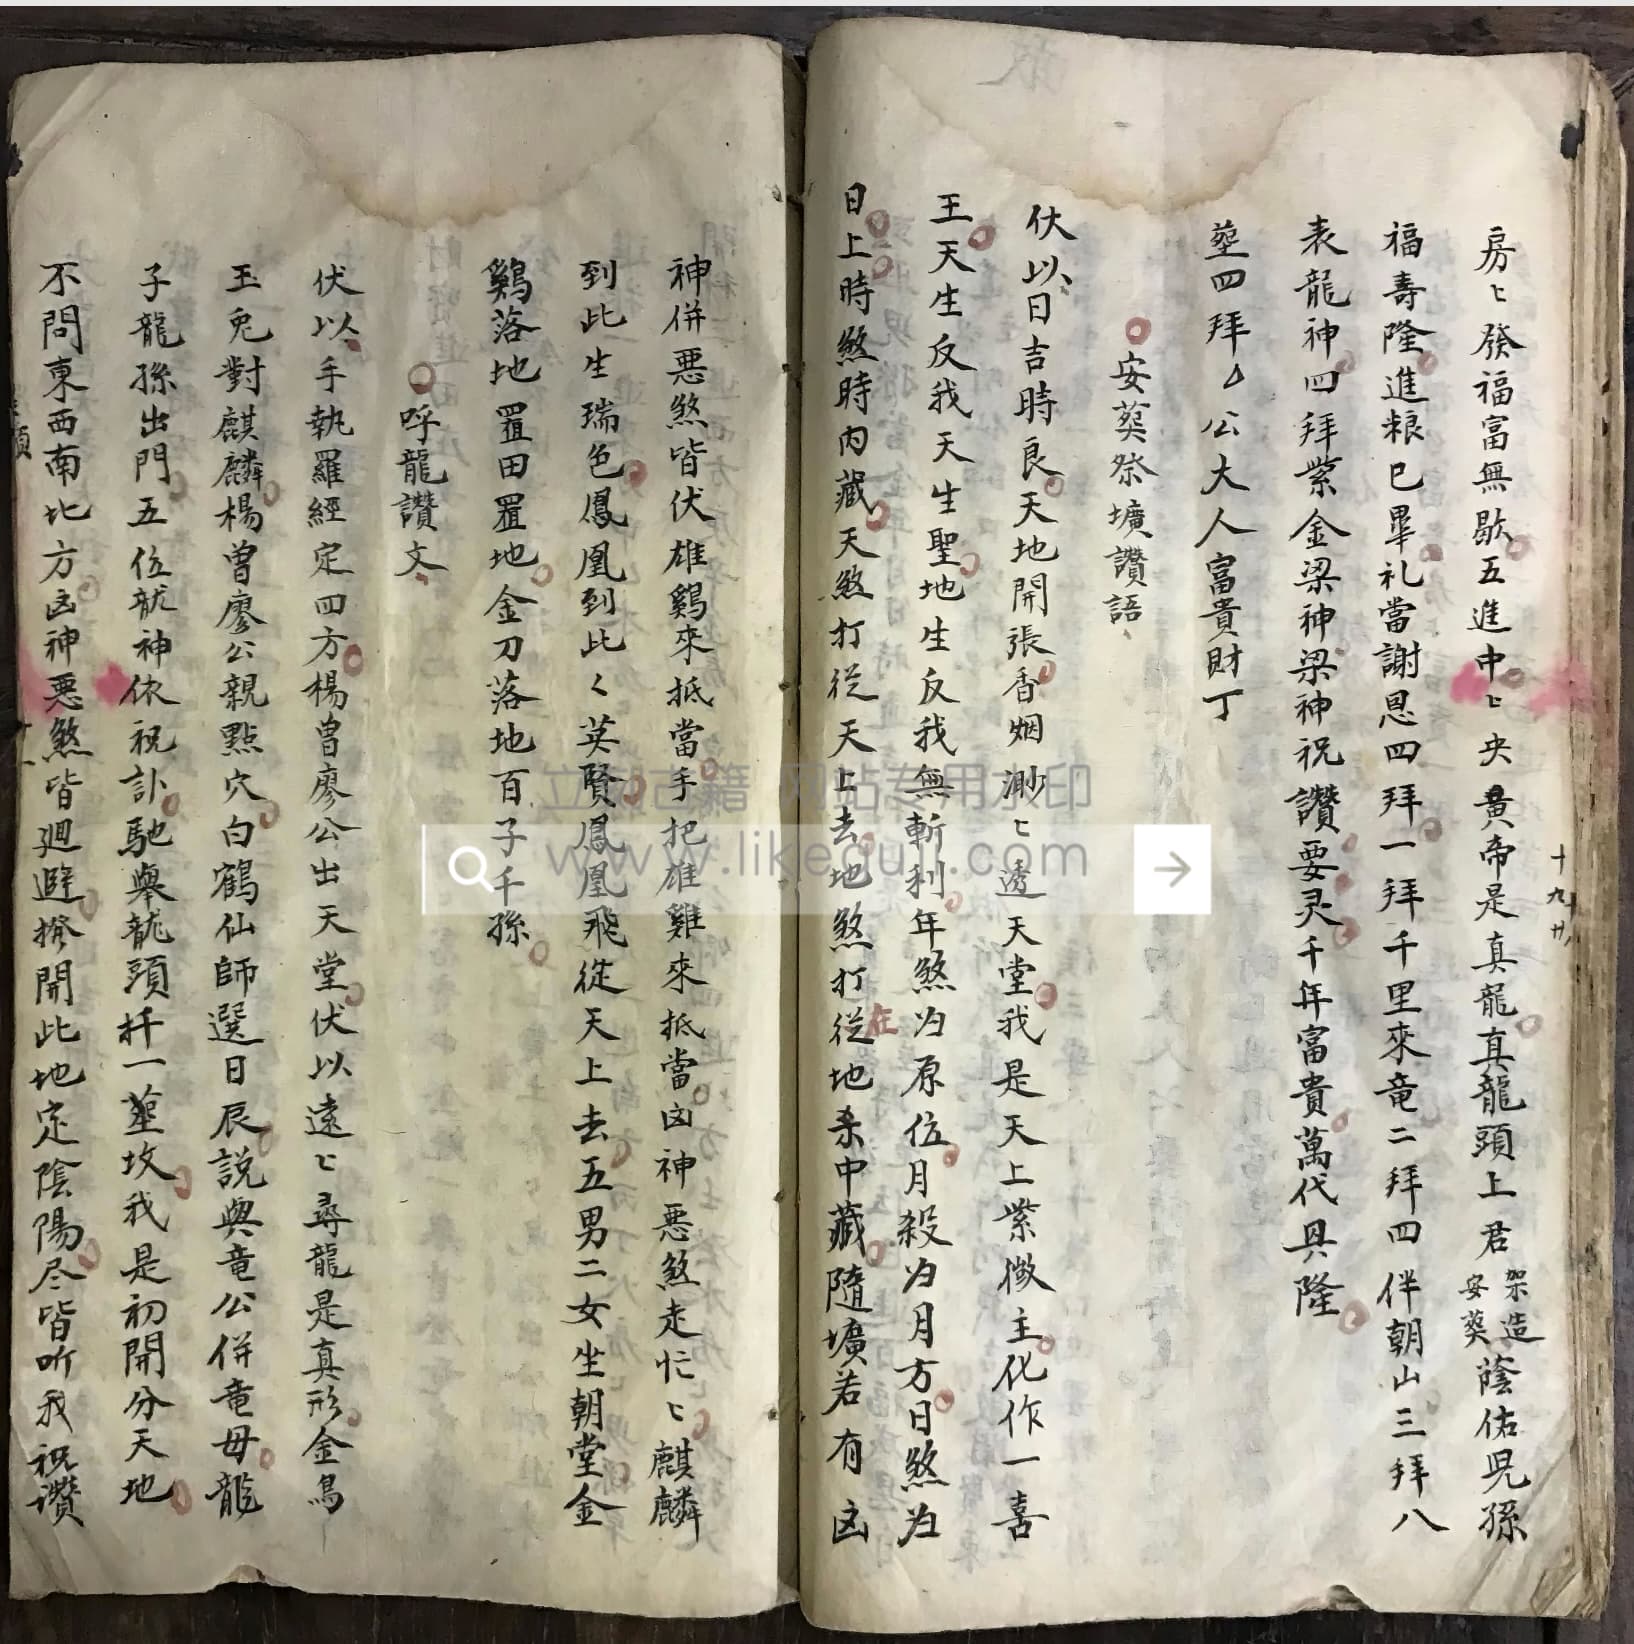 房〻發福富無歇五進中〻央黃帝是真龍真龍頭上君架造安葵蔭佑児孫
福壽隆進粮已畢礼當謝恩四拜一拜千里來竜二拜四伴朝山三拜八
表龍神四拜紫金梁神梁神祝讚要灵千年富貴萬代具隆
塋四拜厶公大人富貴財丁
安葵祭壙讚語
伏以日吉時良天地開張香烟渺〻透天堂我是天上紫微主化作一喜
王天生反我天生聖地生反我無斬利年煞為原位月殺為月方日煞為
日上時煞時內藏天煞打從天上去地煞打從地杀中藏隨壙若有凶
在
神併惡煞皆伏雄鷄來抵當手把雄雞來抵當凶神惡煞走忙〻麒麟
到此生瑞色鳳凰到此〻英賢鳳凰飛從天上去五男二女坐朝堂金
鷄落地置田置地金刀落地百子千孫
呼龍讚文
伏以手執羅經定四方楊曾廖公出天堂伏以遠〻尋龍是真形金鳥
玉兔對麒麟楊曾廖公親點穴白鶴仙師選日辰説與竜公併竜母龍
子龍孫出門五位龍神依祝訃馳舉龍頭扦一塋坟我是初開分天地
不問東西南北方凶神惡煞皆廻避撥開此地定陰陽尽皆听我祝讚
十九
廿
立新古籍 网站专用水印
www.likeguji.com